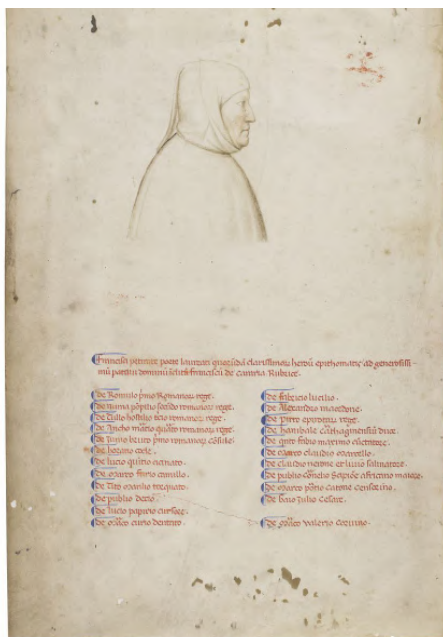 Francisci petrarce poete laureati quorundā clarissimorū heroū epithomatis ad generosissi-
mū patauī dominū franciscū de carraria Rubrice.
de Romulo p̄mo Romanorū rege.
de numa pōpilio scd̄o romanorū rege.
de Tullo hostilio tc̄io romanorū rege.
de Ancho marcio quarto romanorū rege.
de Junio bruto p̄mo romanorū cōsule.
de horatio cocle.
de lucio quītio cīcinato.
de marco furio camillo.
de Tito manlio torquato.
de publio decio.
de lucio papirio cursore.
de marco curio dentato.
de fabricio lucinio.
de Alexandro macedone.
de pirro epirotarū rege.
de hanibale carthaginensiū duce.
de quīto fabio maximo
de marco claudio marcello.
de claudio nerone et liuio salinatore.
de publio cornelio scipiōe africano maiore.
de marco portio catone censorino.
de Gaio Julio cesare.
de marco valerio coruino.